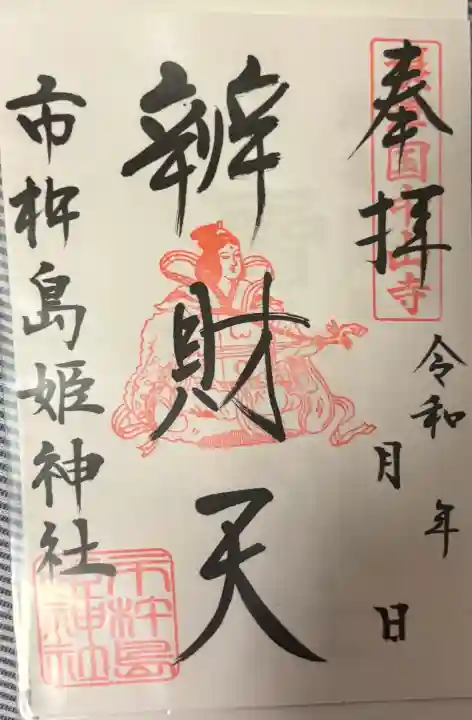 奉拝
令和 年
月 日
辨財天
市杵島姫神社
市杵島
神社